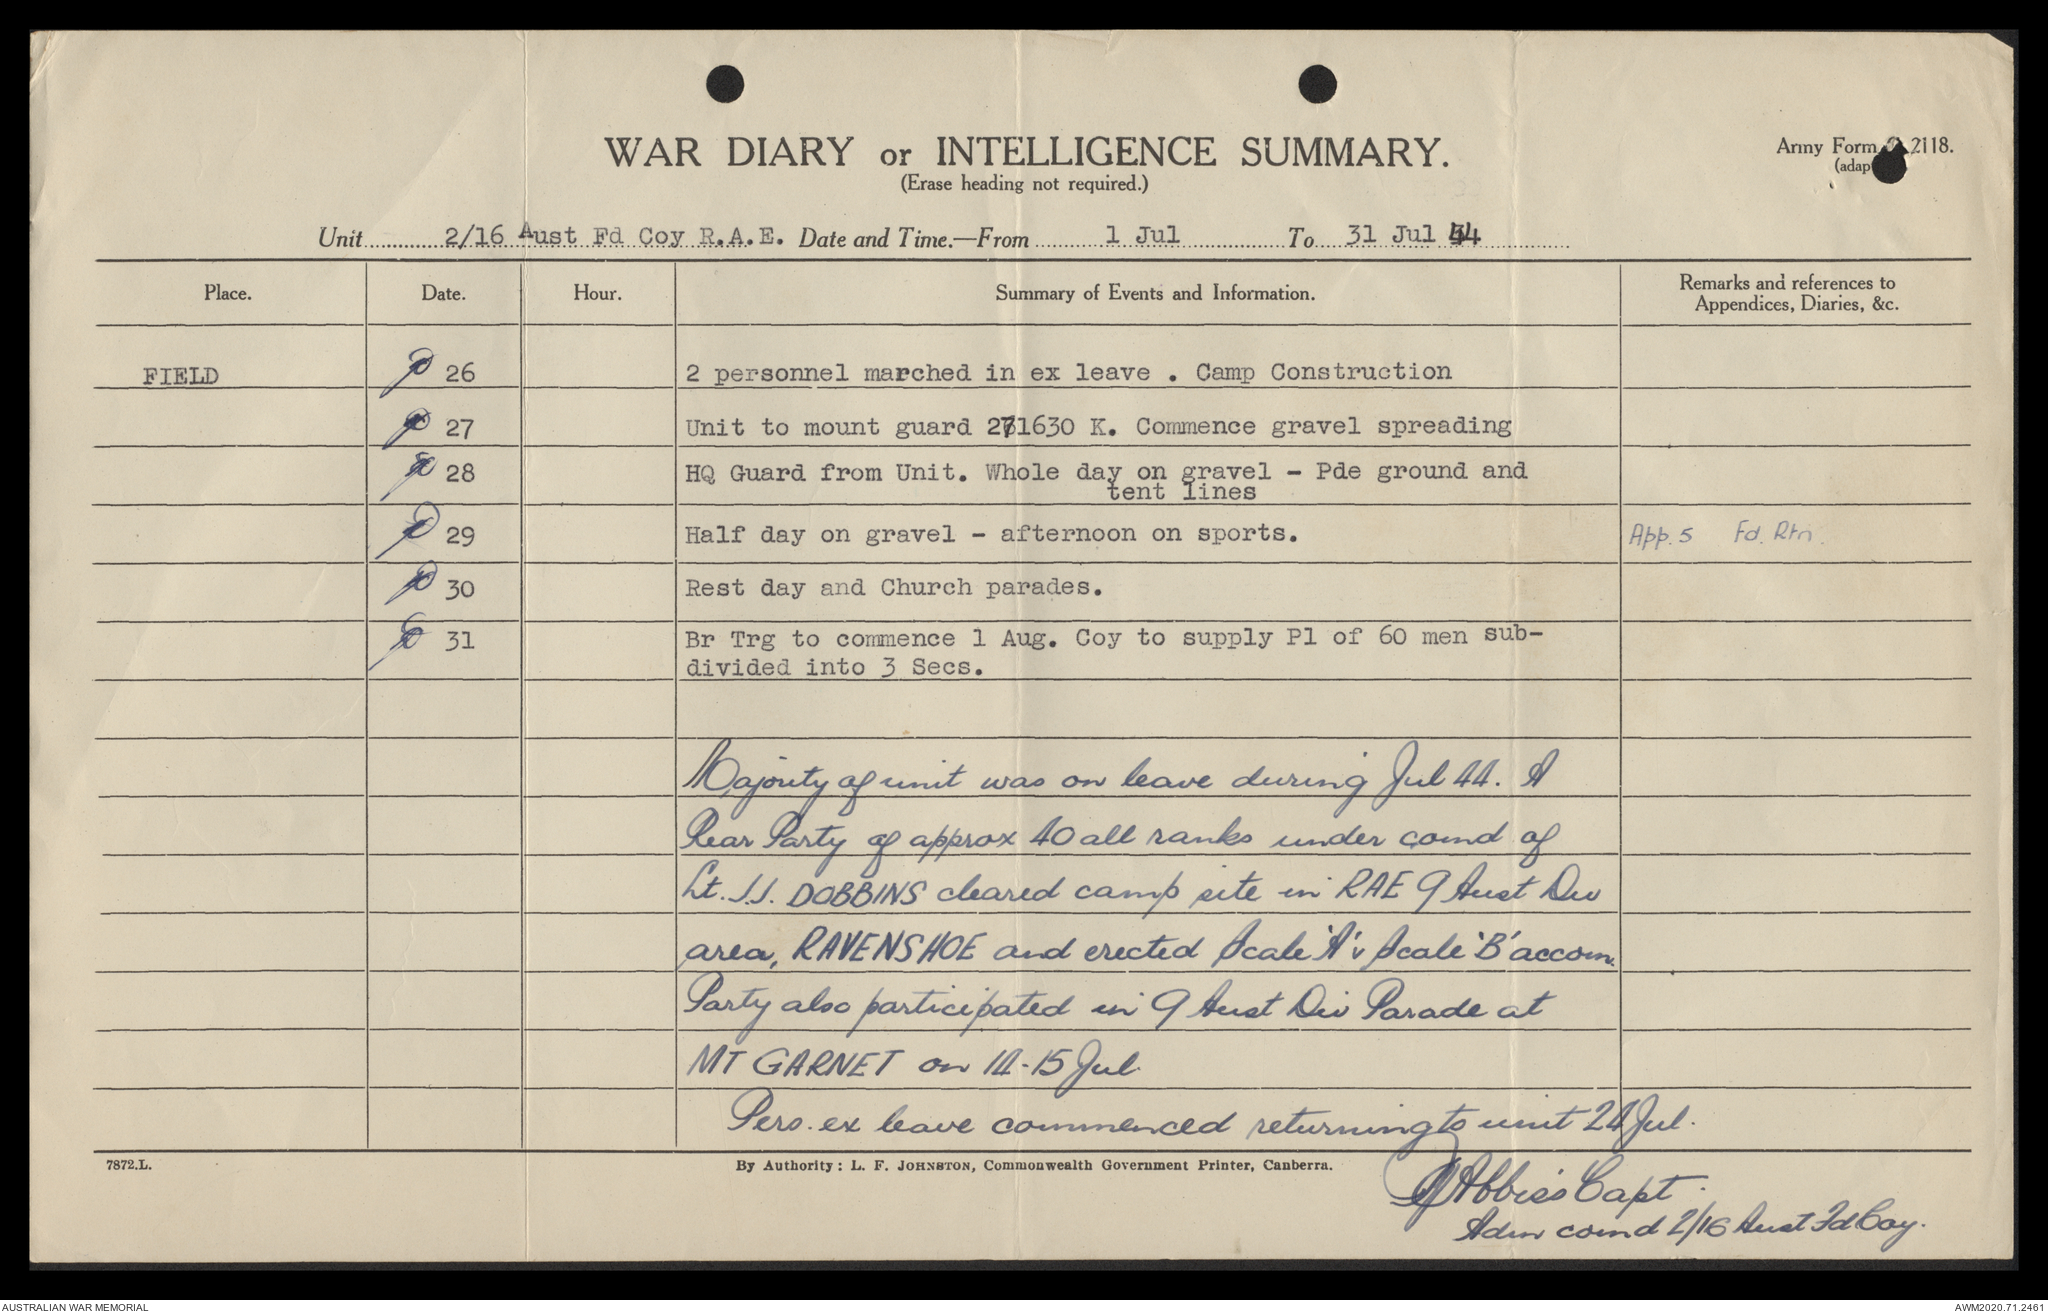 WAR DIARY or INTELLIGENCE SUMMARY.
(Erase heading not required.)
Army Form 2118.
(adap
Unit 2/16 Aust Fd Coy R.A.E. Date and Time.—From 1 Jul To 31 Jul 44
Place. Date. Hour. Summary of Events and Information. Remarks and references to Appendices, Diaries, &c.
FIELD 26 2 personnel marched in ex leave . Camp Construction
27 Unit to mount guard 271630 K. Commence gravel spreading
28 HQ Guard from Unit. Whole day on gravel - Pde ground and
tent lines
29 Half day on gravel - afternoon on sports. App. 5 Fd. Rtn.
30 Rest day and Church parades.
31 Br Trg to commence 1 Aug. Coy to supply Pl of 60 men sub-
divided into 3 Secs.
Majority of unit was on leave during Jul 44. A
Rear Party of approx 40 all ranks under comd of
Lt. J.J. DOBBINS cleared camp site in RAE 9 Aust Div
area, RAVENSHOE and erected Scale 'A' & Scale 'B' accom.
Party also participated in 9 Aust Div Parade at
MT GARNET on 14-15 Jul.
Pers. ex leave commenced returning to unit 24 Jul.
7872.L. By Authority: L. F. JOHNSTON, Commonwealth Government Printer, Canberra.
Abbiss Capt.
Adm comd 2/16 Aust Fd Coy.
AUSTRALIAN WAR MEMORIAL AWM2020.71.2461